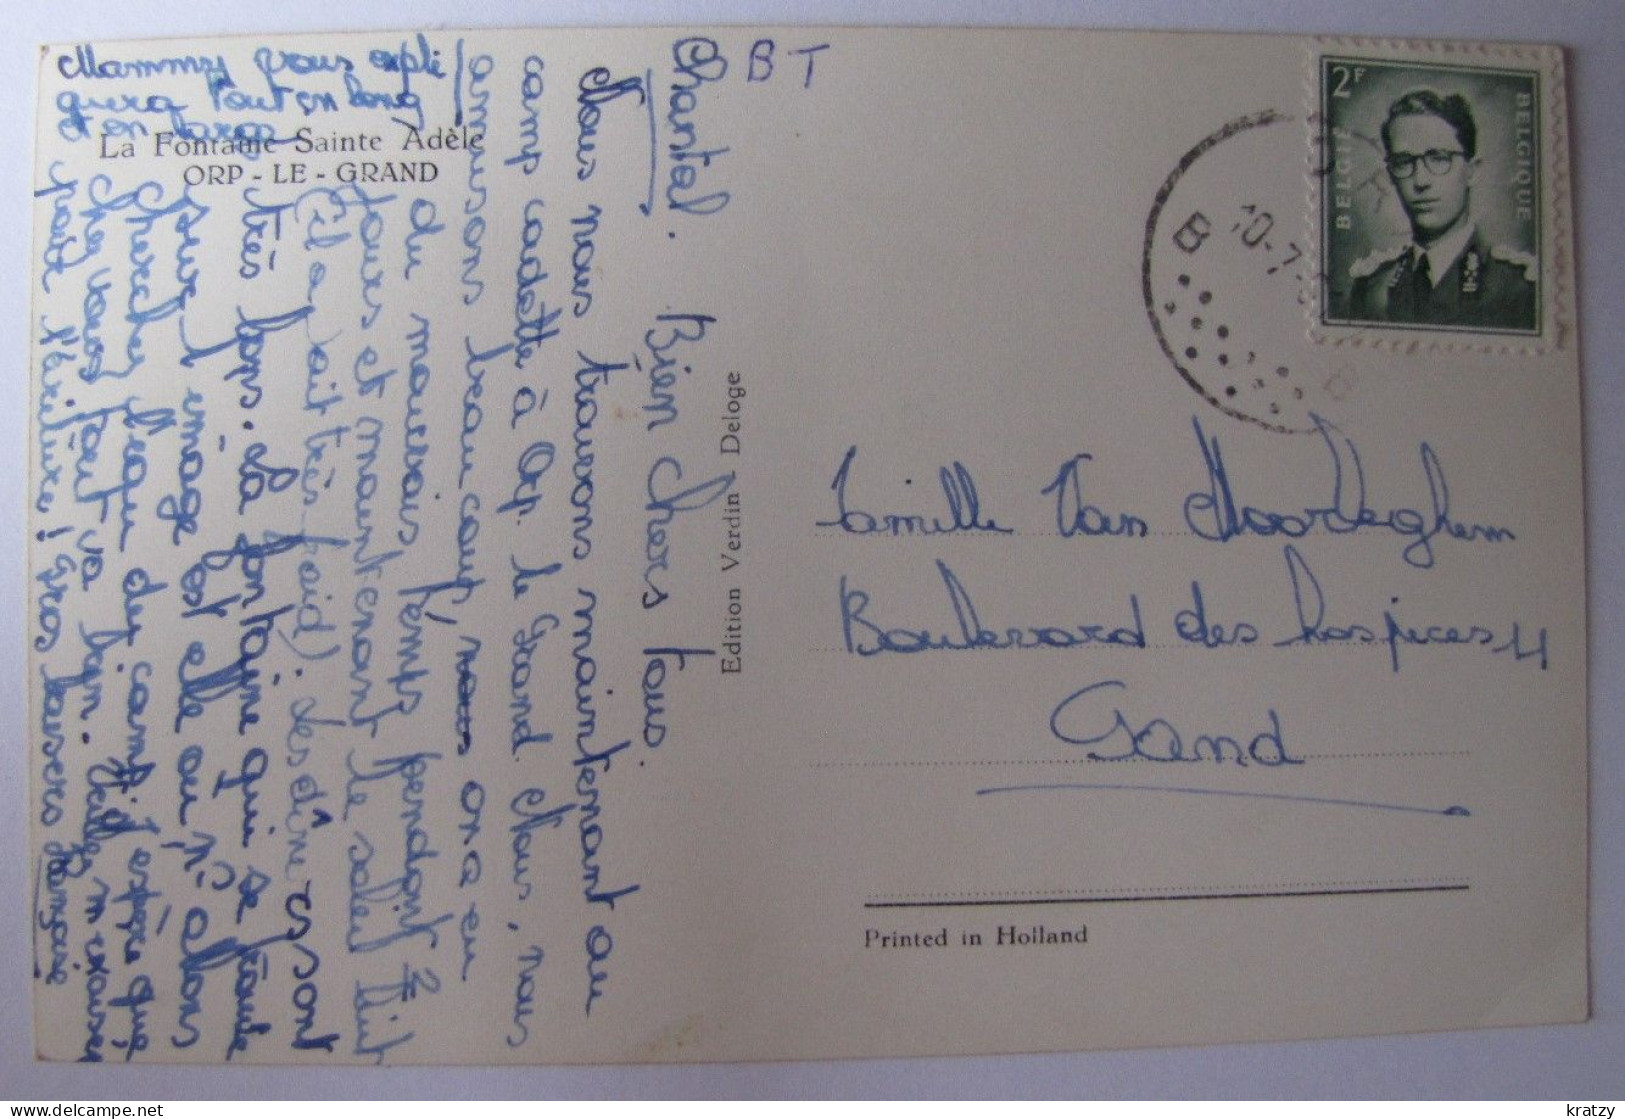 Mammy vous expli
quera tout en long
et en large
La Fontaine Sainte Adèle
ORP - LE - GRAND
Chantal. Bien chers tous
Nous nous trouvons maintenant au
camp cadette à Orp. le Grand. Nous, nous
amusons beaucoup, nous on a eu
du mauvais temps pendant 2
jours et maintenant le soleil luit
(il a fait très froid). Les dîners sont
très bons. La fontaine qui se trouve
sur l'image est elle où n- allons
chercher l'eau du camp. J'espère que
chez vous tout va bien. Veuillez m'excuser
pour l'écriture! Gros baisers Françoise
BT
Edition Verdin - Deloge
2F
BELGIE
BELGIQUE
B
10-7-
Famille Van Moorleghem
Boulevard des hospices 4
Gand
Printed in Holland
delcampe.net
kratzy